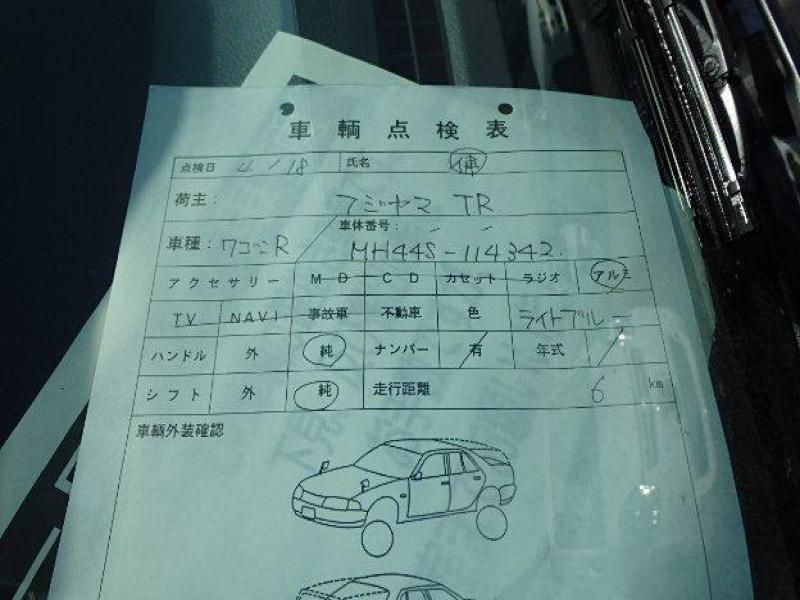 車輌点検表
点検日 4/18 氏名
荷主: フジヤマ TR
車種: ワゴンR 車体番号: MH44S-114342.
アクセサリー MD CD カセット ラジオ アルミ
TV NAVI 事故車 不動車 色 ライトブルー
ハンドル 外 純 ナンバー 有 年式
シフト 外 純 走行距離 6 km
車輌外装確認